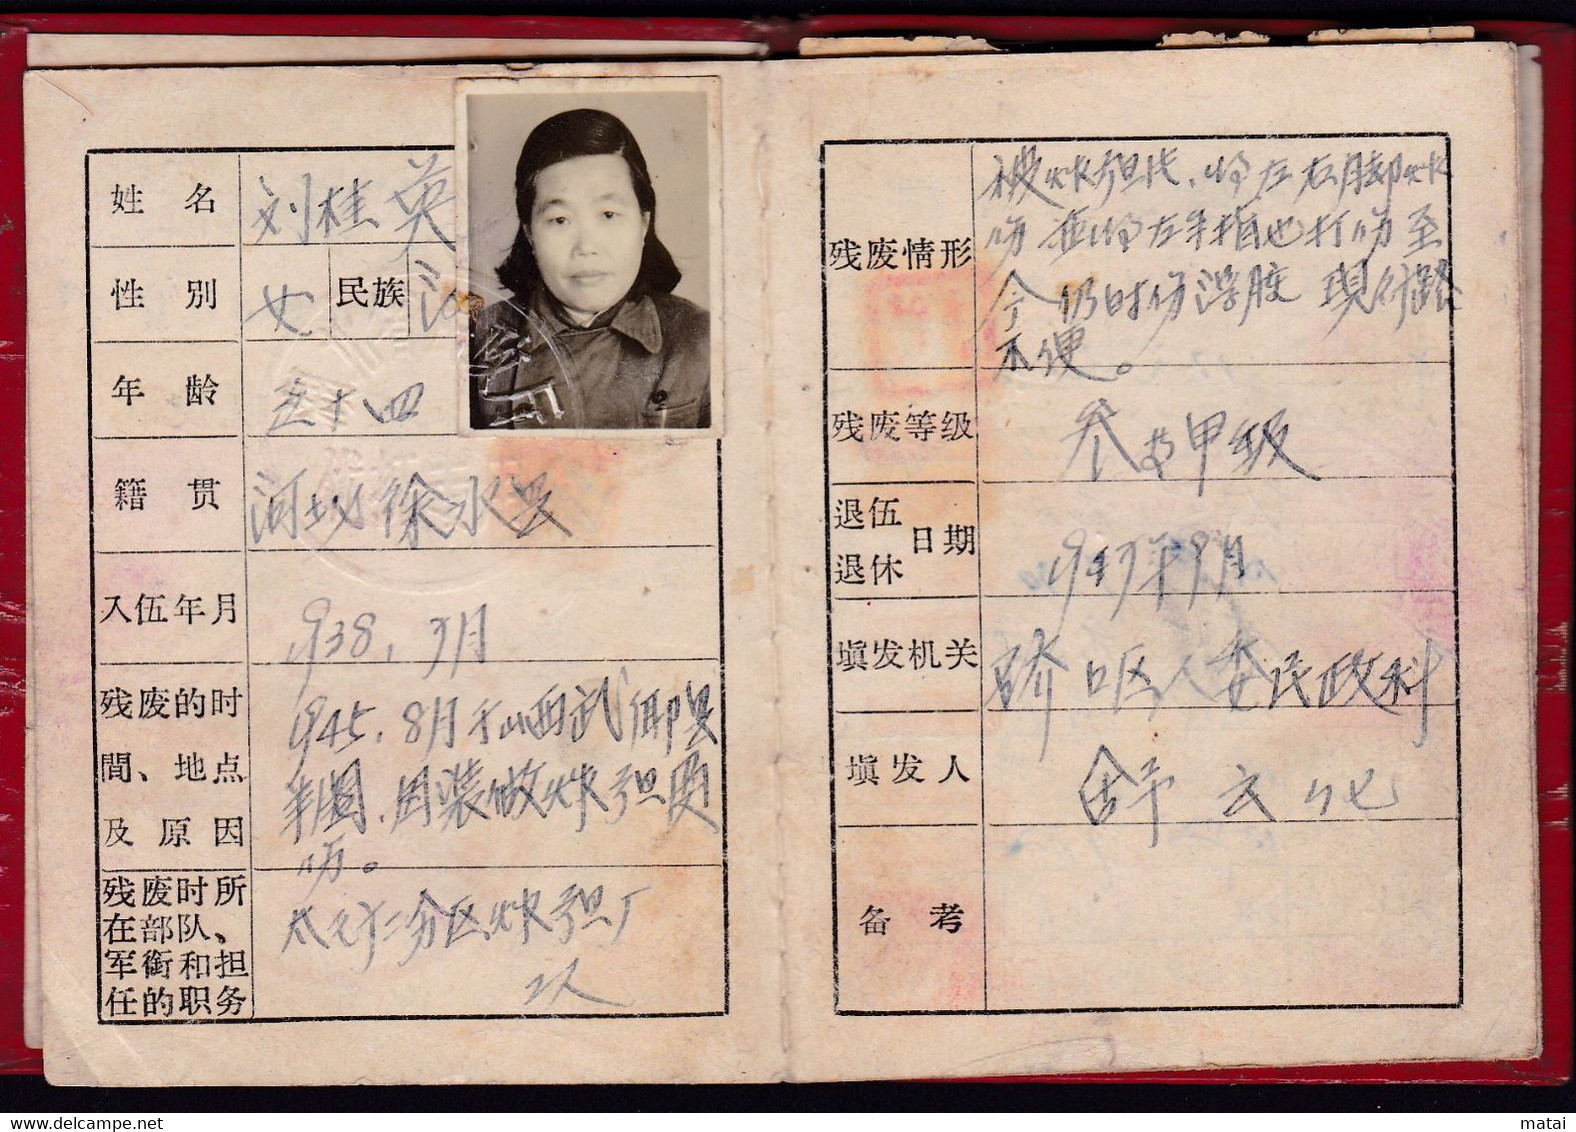 姓名 刘桂英
性别 女 民族 汉
年龄 五十四
籍贯 河北徐水县
入伍年月 1938.7月
残废的时間、地点及原因 1945.8月于山西武鄉县
因装做炸弹
伤。
残废时所在部队、軍銜和担任的职务 太行二分区炸弹厂
工人
残废情形 被炸弹炸,将左右脚炸
伤 並将左手指也打伤至
今仍时份浮肢 現行路
不便。
残废等级 叁等甲级
退伍退休日期 194 年9月
填发机关 硚口区人委民政科
填发人 舒文化
备考
matai